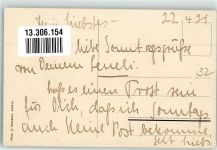 Mein Liebstes - 22.4.21
13.306.154
liebe Sonntagsgrüße
von Deinem
lass es einen Trost sein
32
für Dich, dass ich Sonntag
auch keine Post bekomme,